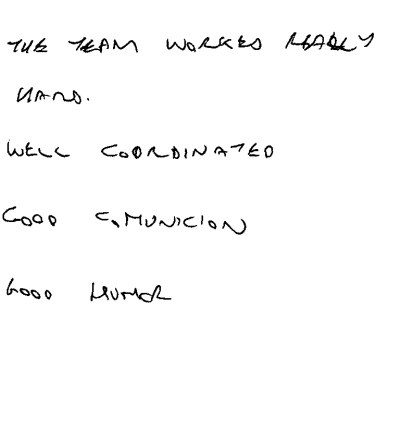 THE TEAM WORKED REALLY
HARD.
WELL COORDINATED
GOOD COMUNICION
GOOD HUMOR